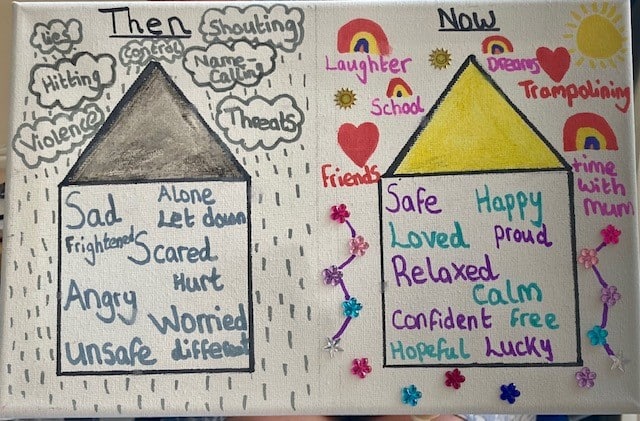 Then
Shouting
lies
control
Name-
Calling
Hitting
Violence
Threats
Sad
Alone
Let down
Frightened
Scared
Hurt
Angry
Worried
unsafe
different
Now
Laughter
Dreams
School
Trampolining
Friends
time
with
mum
Safe
Happy
Loved
proud
Relaxed
Calm
Confident
free
Hopeful
Lucky